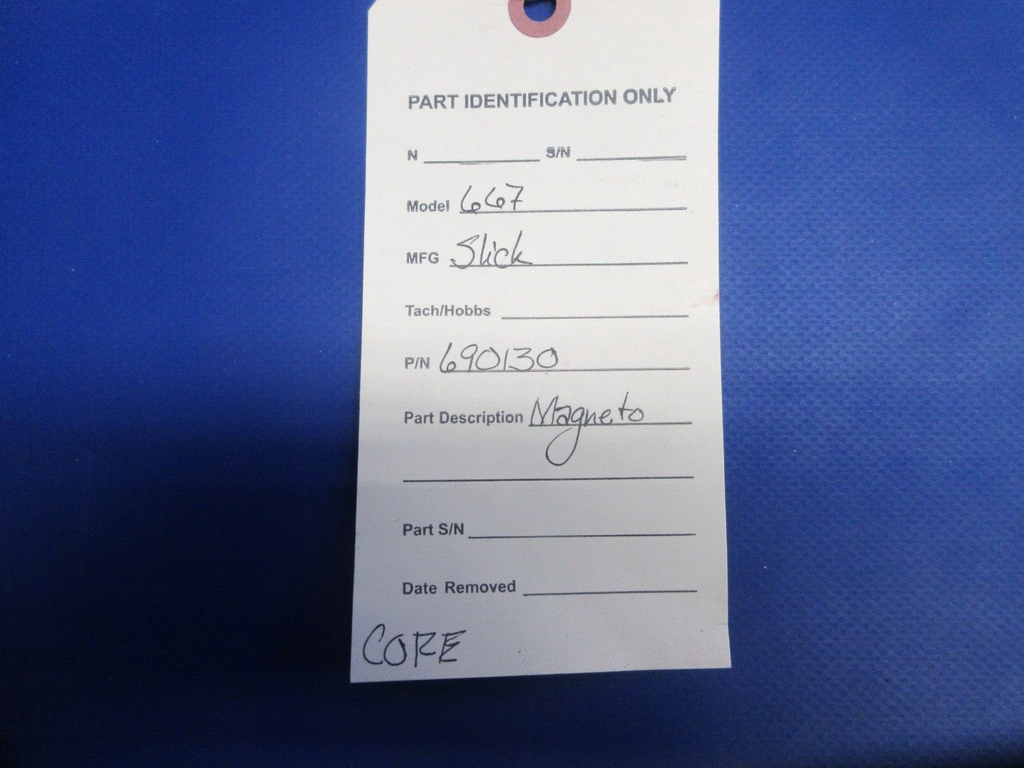 PART IDENTIFICATION ONLY
N S/N
Model 667
MFG Slick
Tach/Hobbs
P/N 690130
Part Description Magneto
Part S/N
Date Removed
CORE